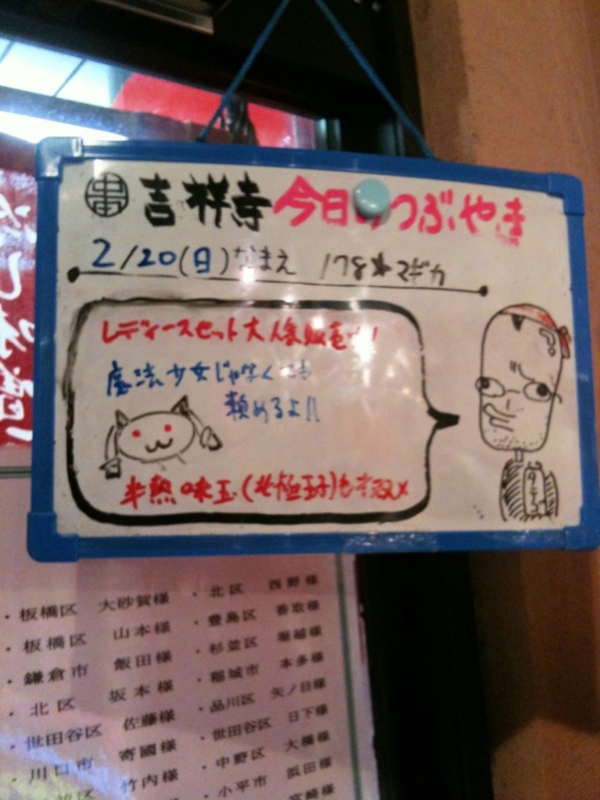 吉祥寺 今日のつぶやき
2/20(日)なまえ
レディースセット大人気販売中!
魔法少女じゃなくても
頼めるよ!!
半熟味玉(北極玉子)も
・板橋区 大砂賀様
・板橋区 山本様
・鎌倉市 飯田様
・北区 坂本様
・世田谷区 佐藤様
・川口市 寄國様
竹内様
・北区 西野様
・豊島区 香取様
・杉並区 堀越様
・稲城市 本多様
・品川区 矢ノ目様
・世田谷区 日下様
・中野区 大橋様
・小平市 浜田様
宮崎様